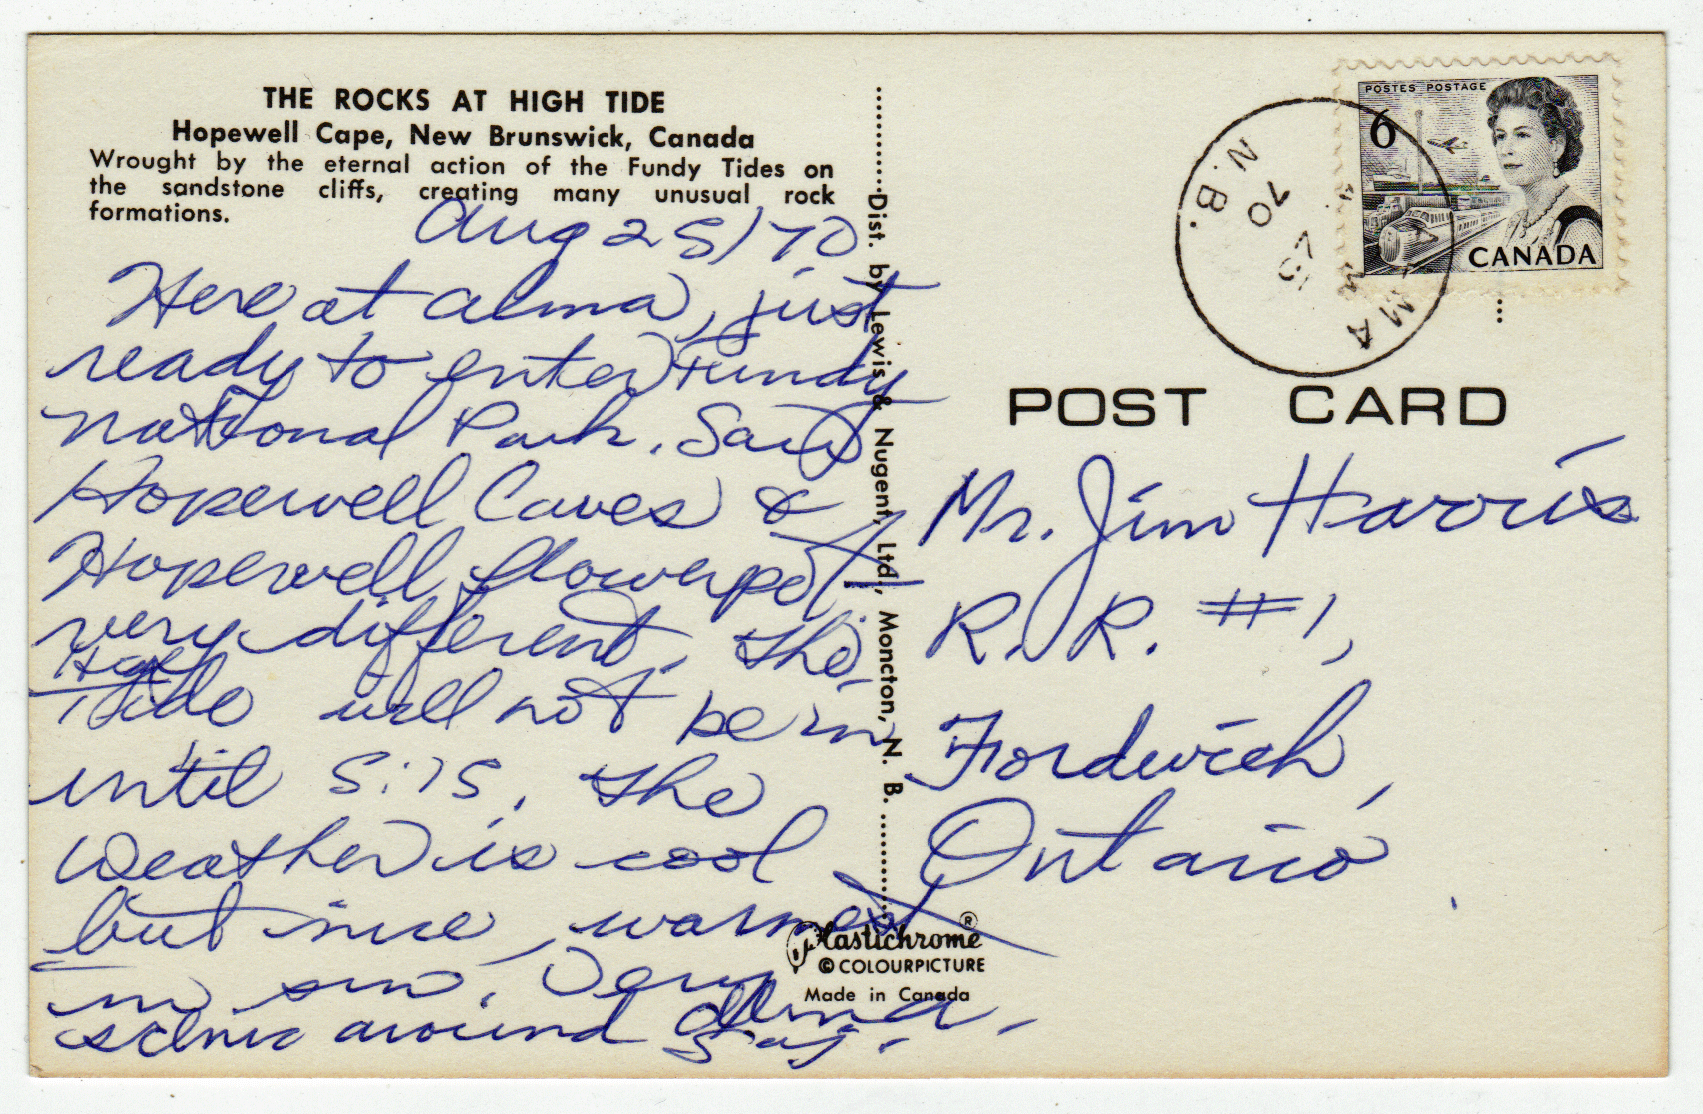 THE ROCKS AT HIGH TIDE
Hopewell Cape, New Brunswick, Canada
Wrought by the eternal action of the Fundy Tides on
the sandstone cliffs, creating many unusual rock
formations.
Aug 25/70
Here at Alma, just
ready to enter Fundy
National Park. Saw
Hopewell Caves &
Hopewell flowerpot
very different. The
High
Tide will not be in
until 5:15. The
weather is cool
but nice, warmest
in sun. Very
scenic around Alma.
Dist. by Lewis & Nugent, Ltd., Moncton, N. B.
Plastichrome ®
© COLOURPICTURE
Made in Canada
POSTES POSTAGE
6
CANADA
ALMA
70
N.B.
POST CARD
Mr. Jim Harris
R. R. #1,
Fordwich,
Ontario